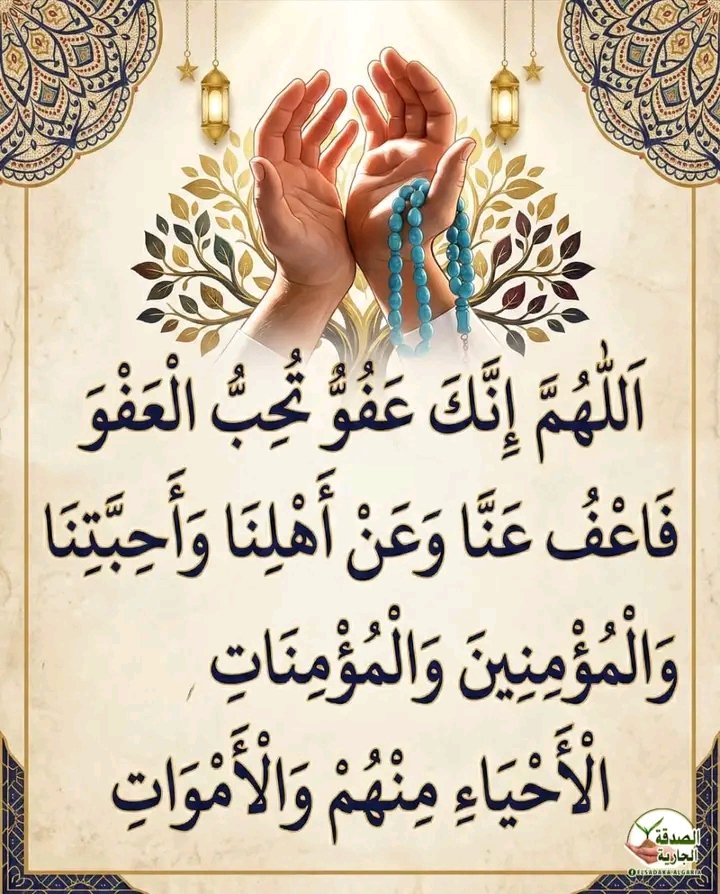 اَللّٰهُمَّ إِنَّكَ عَفُوٌّ تُحِبُّ الْعَفْوَ
فَاعْفُ عَنَّا وَعَنْ أَهْلِنَا وَأَحِبَّتِنَا
وَالْمُؤْمِنِينَ وَالْمُؤْمِنَاتِ
الْأَحْيَاءِ مِنْهُمْ وَالْأَمْوَاتِ
الصدقة
الجارية
ELSADAKA.ALGARIA